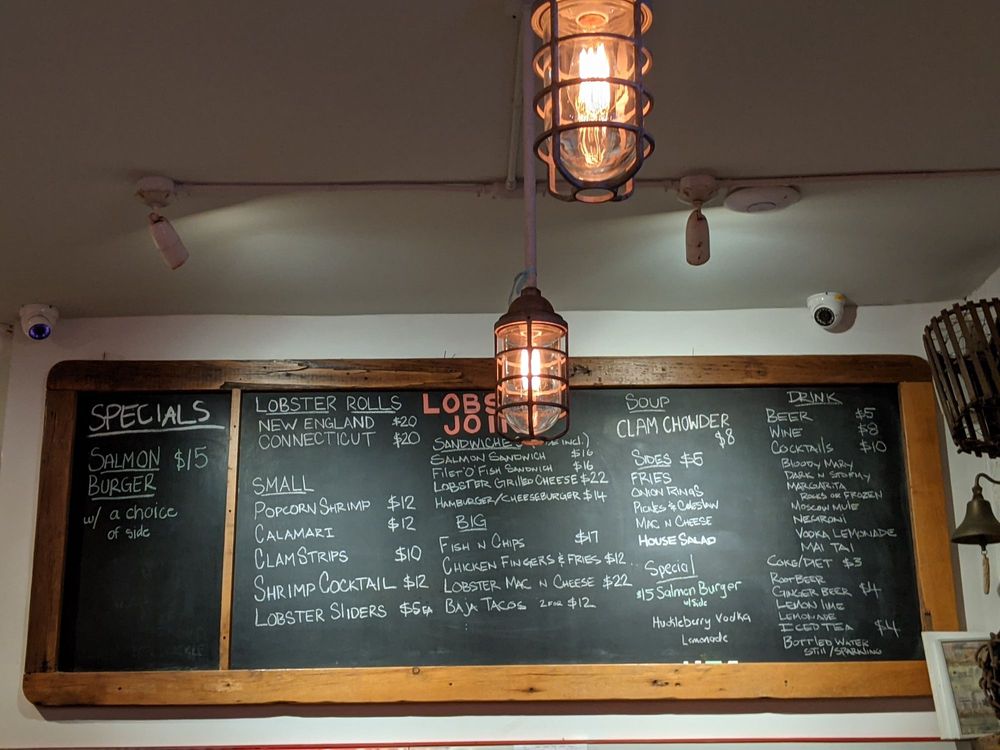 SPECIALS
SALMON $15
BURGER
w/ a choice
of side
LOBSTER ROLLS
NEW ENGLAND $20
CONNECTICUT $20
SMALL
POPCORN SHRIMP $12
CALAMARI $12
CLAM STRIPS $10
SHRIMP COCKTAIL $12
LOBSTER SLIDERS $5 EA
LOBS
JOI
SANDWICHES incl.)
SALMON SANDWICH $16
FILET'O'FISH SANDWICH $16
LOBSTER GRILLED CHEESE $22
HAMBURGER/CHEESEBURGER $14
BIG
FISH N CHIPS $17
CHICKEN FINGERS & FRIES $12
LOBSTER MAC N CHEESE $22
BAJA TACOS 2 FOR $12
SOUP
CLAM CHOWDER
$8
SIDES $5
FRIES
ONION RINGS
PICKLES & COLESLAW
MAC N CHEESE
HOUSE SALAD
Special
$15 Salmon Burger
w/ side
Huckleberry Vodka
Lemonade
DRINK
BEER $5
WINE $8
COCKTAILS $10
BLOODY MARY
DARK N STORMY
MARGARITA
ROCKS OR FROZEN
MOSCOW MULE
NEGRONI
VODKA LEMONADE
MAI TAI
COKE/DIET $3
ROOT BEER
GINGER BEER $4
LEMON LIME
LEMONADE
ICED TEA $4
BOTTLED WATER
STILL/SPARKLING